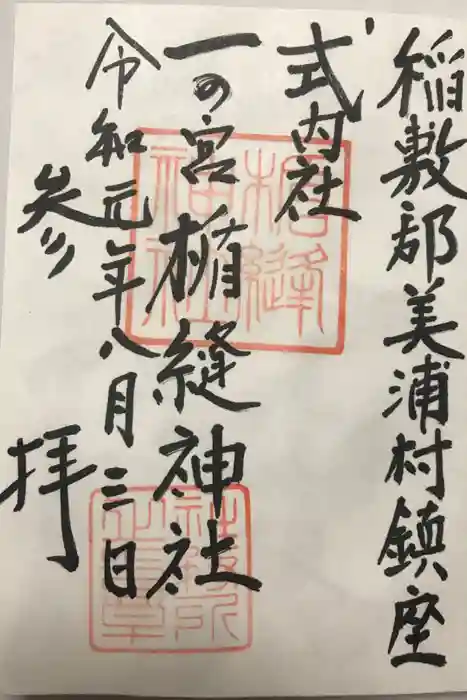 稲敷郡美浦村鎮座
式内社
一の宮楯縫神社
令和元年八月三日
参拝
楯縫
神社